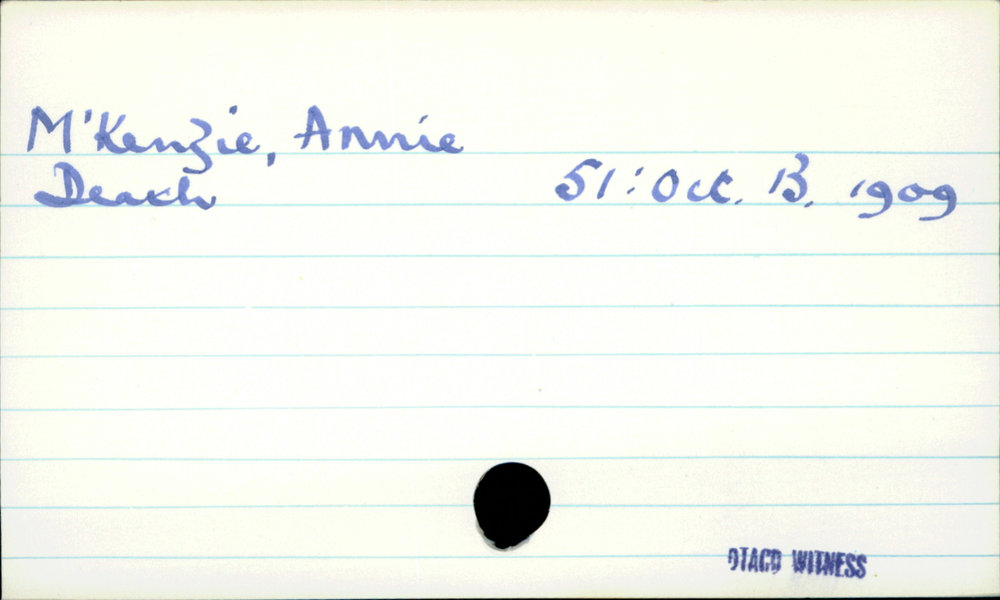 M'Kenzie, Annie
Death 51: Oct. 13. 1909
OTAGO WITNESS